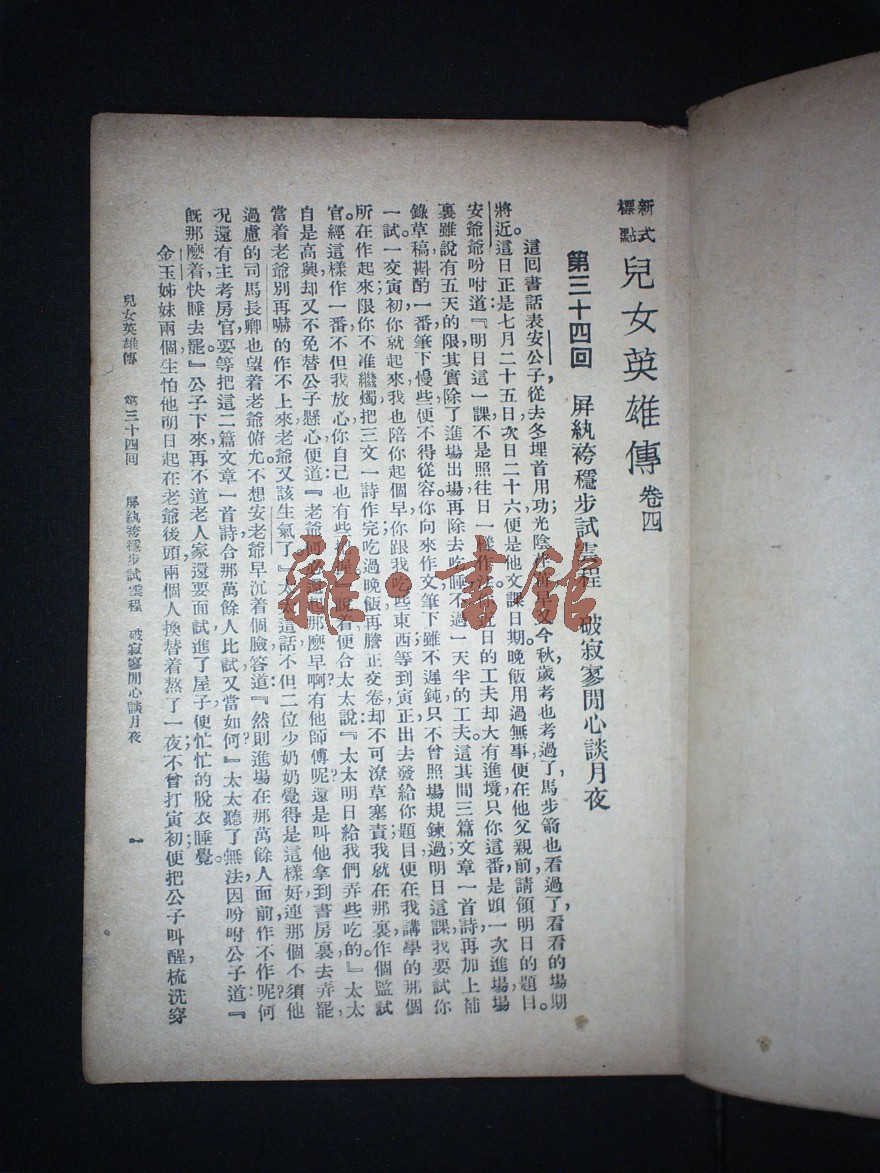 新式
標點
兒女英雄傳 卷四
第三十四回 屏紈袴穩步試雲程 破寂寥閒心談月夜
這回書話表安公子從去冬埋首用功光陰早又今秋歲考也考過了,馬步箭也看過了,看看的場期
將近。這日正是七月二十五日次日二十六便是他文課日期晚飯用過無事便在他父親前請領明日的題目。
安爺爺吩咐道『明日這一課不是照往日一樣作法你近日的工夫却大有進境只你這番是頭一次進場場
裏雖說有五天的限其實除了進場出場再除去吃睡不過一天半的工夫。這其間三篇文章一首詩再加上補
錄草稿斟酌一番筆下慢些便不得從容你向來作文筆下雖不遲鈍只不曾照場規鍊過明日這課我要試你
一試一交寅初你就起來我也陪你起個早你跟我吃些東西等到寅正出去發給你題目便在我講學的那個
所在作起來限你不准繼燭把三文一詩作完吃過晚飯再謄正交卷却不可潦草塞責我就在那裏作個監試
官經這樣作一番不但我放心你自己也有些把握』說着便合太太說『太太明日給我們弄些吃的』太太
自是高興却又不免替公子懸心便道『老爺何必還起那麽早啊有他師傅呢還是叫他拿到書房裏去弄罷
當着老爺別再嚇的作不上來老爺又該生氣了』太太這話不但二位少奶奶覺得是這樣好連那個不須他
過慮的司馬長卿也望着老爺俯允不想安老爺早沉着個臉答道『然則進場在那萬餘人面前作不作呢何
况還有主考房官要等把這三篇文章一首詩合那萬餘人比試又當如何』太太聽了無法因吩咐公子道『
旣那麽着快睡去罷』公子下來再不道老人家還要面試進了屋子便忙忙的脫衣睡覺。
金玉姊妹兩個生怕他明日起在老爺後頭兩個人換替着熬了一夜不曾打寅初便把公子叫醒梳洗穿
兒女英雄傳 第三十四回 屏紈袴穩步試雲程 破寂寥閒心談月夜 一
雜·書館